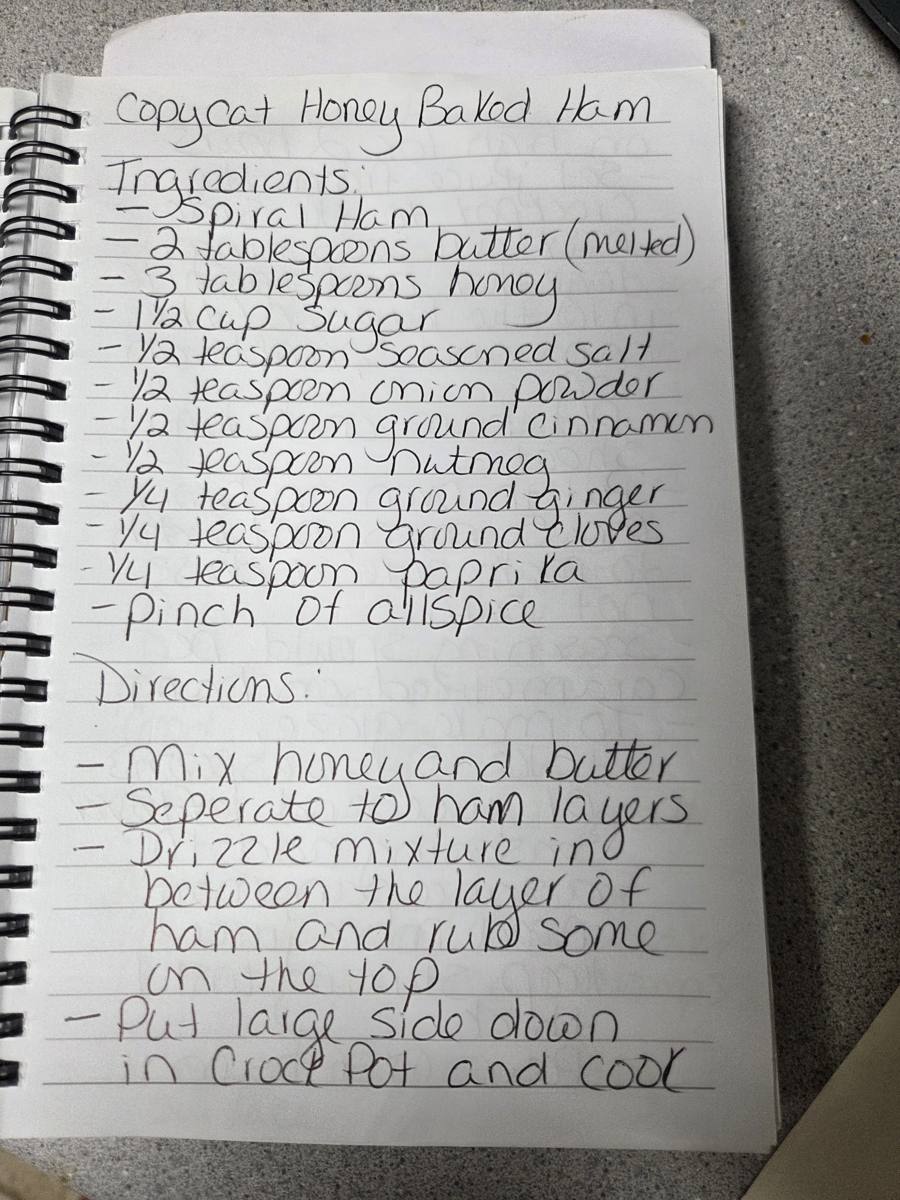 Copycat Honey Baked Ham
Ingredients:
- Spiral Ham
- 2 tablespoons butter (melted)
- 3 tablespoons honey
- 1 1/2 cup sugar
- 1/2 teaspoon seasoned salt
- 1/2 teaspoon onion powder
- 1/2 teaspoon ground cinnamon
- 1/2 teaspoon nutmeg
- 1/4 teaspoon ground ginger
- 1/4 teaspoon ground cloves
- 1/4 teaspoon paprika
- Pinch of allspice
Directions:
- Mix honey and butter
- Seperate to ham layers
- Drizzle mixture in
between the layer of
ham and rub some
on the top
- Put large side down
in Crock Pot and cook